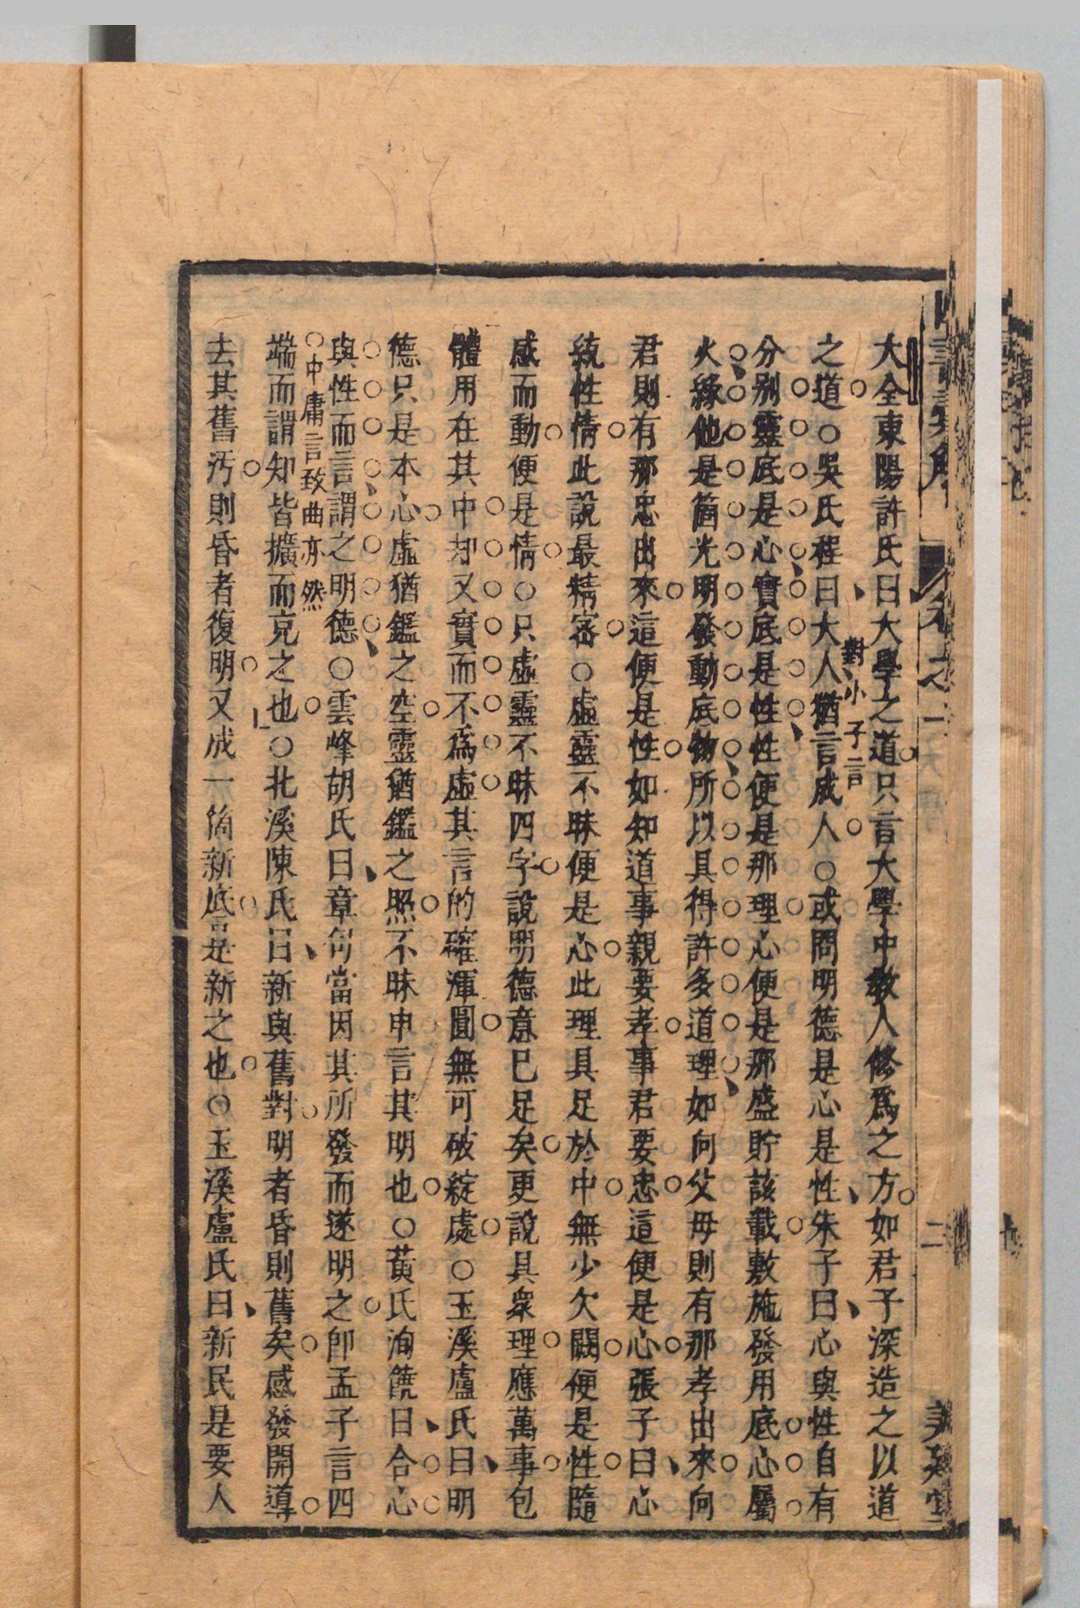 大全東陽許氏曰大學之道只言大學中教人修爲之方如君子深造之以道
之道○吳氏程曰大人猶言成人○或問明德是心是性朱子曰心與性自有
對小子言
分別靈底是心實底是性性便是那理心便是那盛貯該載敷施發用底心屬
火緣他是箇光明發動底物所以具得許多道理如向父母則有那孝出來向
君則有那忠出來這便是性如知道事親要孝事君要忠這便是心張子曰心
統性情此說最精密○虛靈不昧便是心此理具足於中無少欠闕便是性隨
感而動便是情○只虛靈不昧四字說明德意已足矣更說具眾理應萬事包
體用在其中却又實而不爲虛其言的確渾圓無可破綻處○玉溪盧氏曰明
德只是本心虛猶鑑之空靈猶鑑之照不昧申言其明也○黃氏洵饒曰合心
與性而言謂之明德○雲峰胡氏曰章句當因其所發而遂明之卽孟子言四
○中庸言致曲亦然
端而謂知皆擴而充之也○北溪陳氏曰新與舊對明者昏則舊矣感發開導
去其舊汚則昏者復明又成一箇新底言是新之也○玉溪盧氏曰新民是要人
卷之一
二